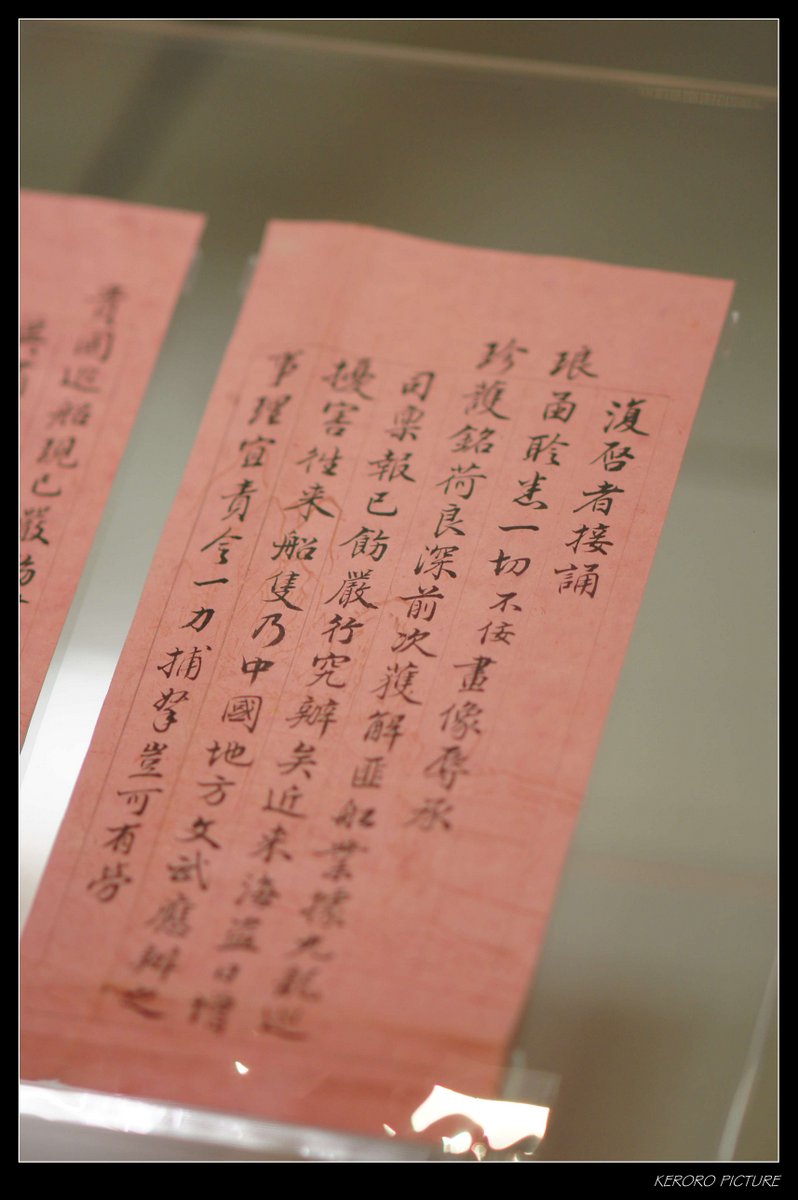 復啓者接誦
琅函聆悉一切不佞畫像辱承
珍護銘荷良深前次獲解匪船業據九龍巡
司稟報已飭嚴行究辦矣近来海盜日增
擾害往来船隻乃中國地方文武應辦之
事理宜責令一力捕拏豈可有勞
貴國巡船現已嚴飭
KERORO PICTURE